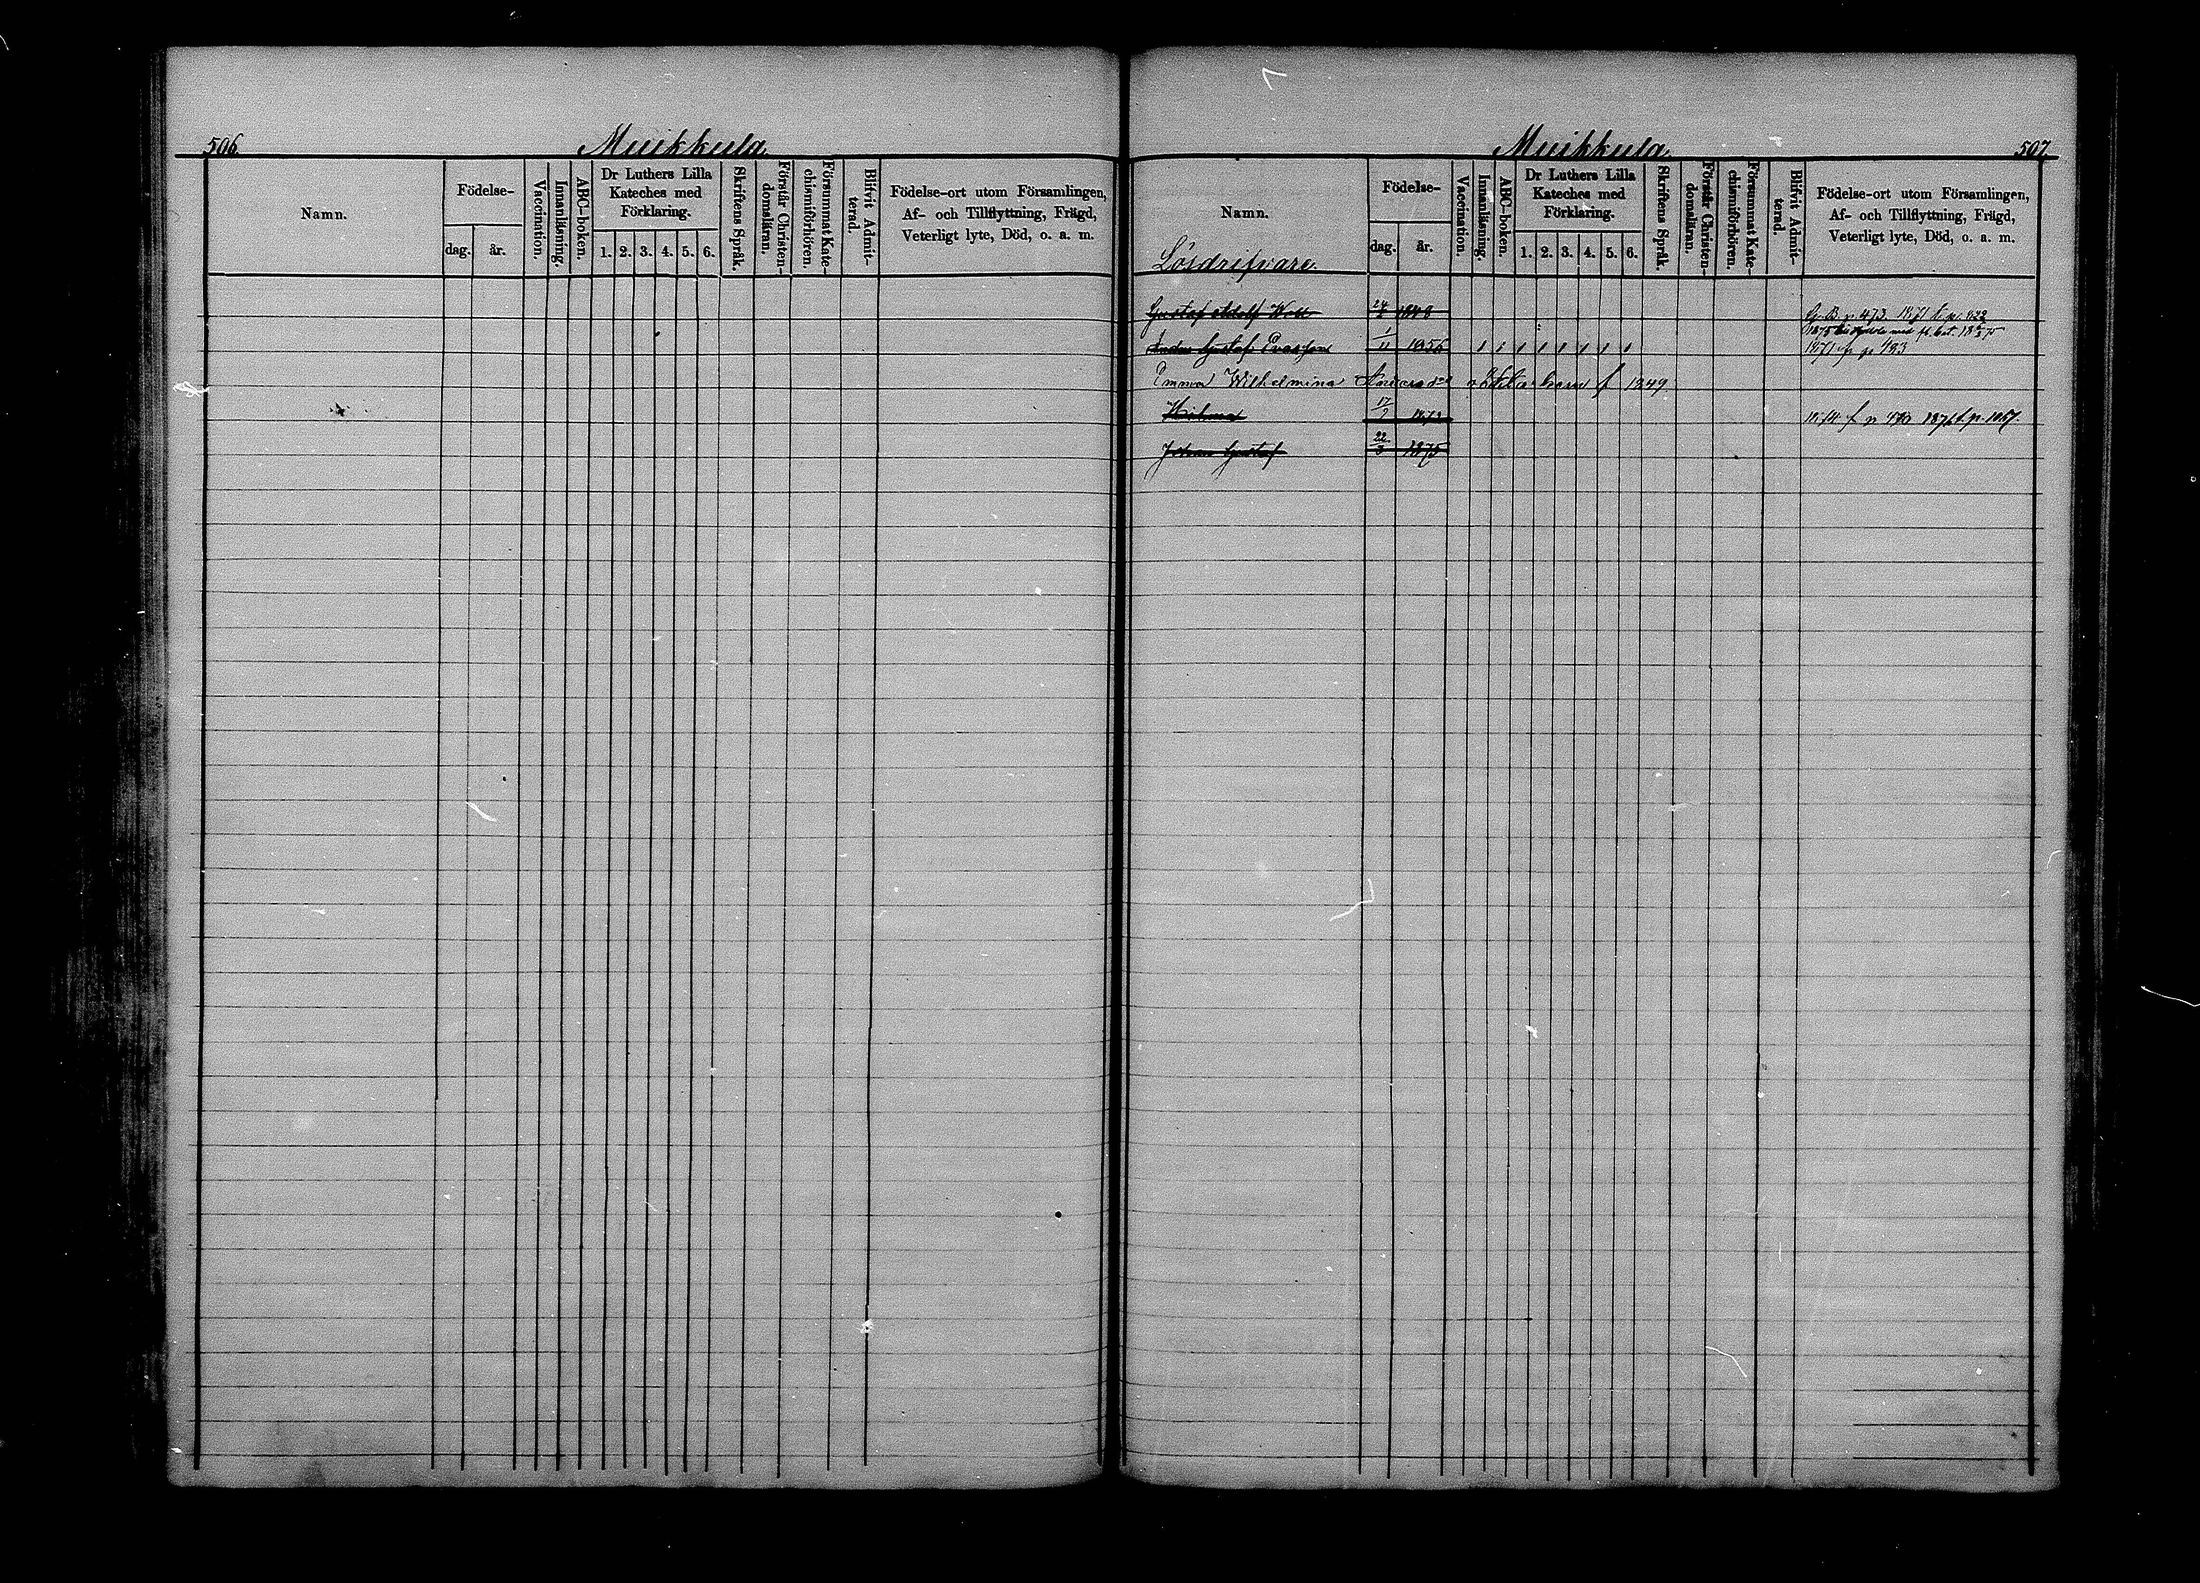 506.
Muikkula.
Namn.
Födelse-
dag.
år.
Vaccination.
Innanläsning.
ABC-boken.
Dr Luthers Lilla
Kateches med
Förklaring.
1. 2. 3. 4. 5. 6.
Skriftens Språk.
Förstår Christen-
domsläran.
Försummat Kate-
chismiförhören.
Blifvit Admit-
terad.
Födelse-ort utom Församlingen,
Af- och Tillflyttning, Frägd,
Veterligt lyte, Död, o. a. m.
Muikkula.
507.
Namn.
Födelse-
dag.
år.
Vaccination.
Innanläsning.
ABC-boken.
Dr Luthers Lilla
Kateches med
Förklaring.
1. 2. 3. 4. 5. 6.
Skriftens Språk.
Förstår Christen-
domsläran.
Försummat Kate-
chismiförhören.
Blifvit Admit-
terad.
Födelse-ort utom Församlingen,
Af- och Tillflyttning, Frägd,
Veterligt lyte, Död, o. a. m.
Lösdrifvare.
Gustaf Adolf 24 1848 p. 473. 1871
Gustaf 1/11 1856 1871 p. 483
Emma Wilhelmina barn f 1849
Hilma 17 f p 1876 t. p. 1057.
Johan Gustaf 22/3 1875